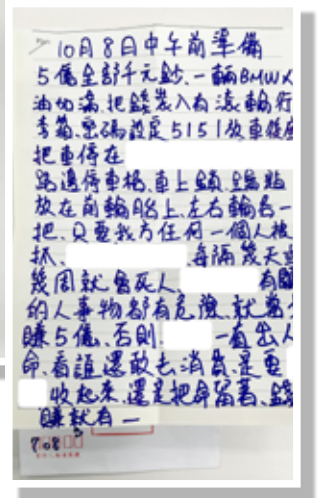 10月8日中午前準備
5億全部千元鈔、一輛BMWX
油加滿、把錢裝入有滾輪行
李箱、密碼設定5151放車後座
把車停在
路邊停車格、車上鎖、鑰匙
放在前輪胎上、左右輪各一
把、只要我方任何一個人被
抓、 每隔幾天或
幾周就會死人、 有關
的人事物都有危險、就當
賺5億、否則 一直出人
命、看誰還敢去消費、是要
收起來、還是把命留著、錢
賺就有一